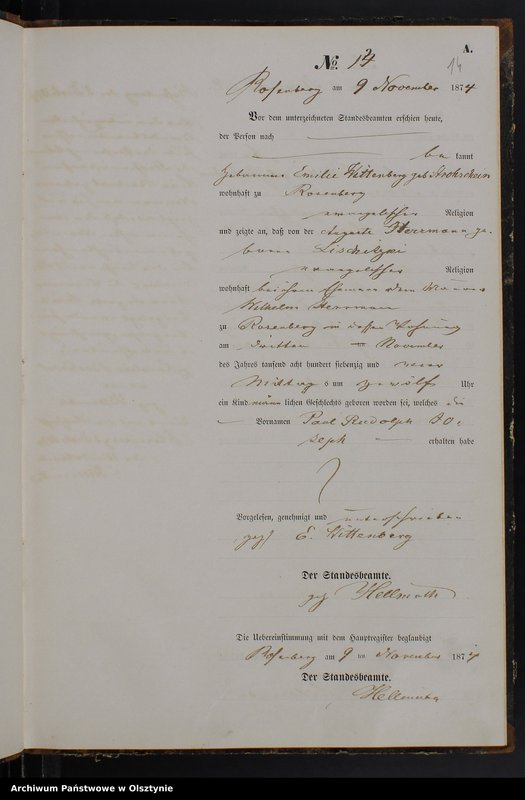 A.
14
№. 14
Rosenberg am 9 November 1874
Vor dem unterzeichneten Standesbeamten erschien heute,
der Person nach
be kannt
Hebamme Emilie Wittenberg geb
wohnhaft zu Rosenberg
evangelischer Religion
und zeigte an, daß von der Auguste Herrmann ge-
borene
evangelischer Religion
wohnhaft bei ihrem Ehemann dem Maurer
Wilhelm Herrmann
zu Rosenberg in dessen Wohnung
am dritten November
des Jahres tausend acht hundert siebenzig und vier
Mittag s um zwölf Uhr
ein Kind männ lichen Geschlechts geboren worden sei, welches die
Vornamen Paul Rudolph Jo-
seph erhalten habe
Vorgelesen, genehmigt und unterschrieben
gez. E. Wittenberg
Der Standesbeamte.
gez Hellmuth
Die Uebereinstimmung mit dem Hauptregister beglaubigt
Rosenberg am 9 ten November 1874
Der Standesbeamte.
Hellmuth
Archiwum Państwowe w Olsztynie